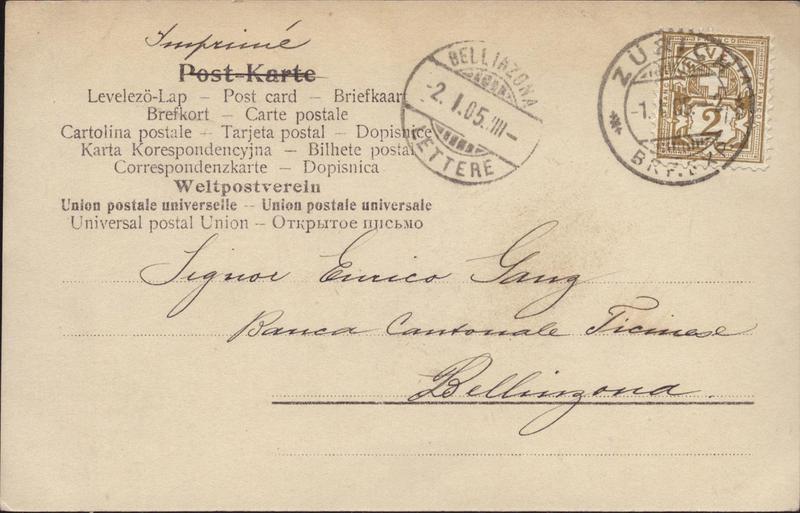 Imprimé
Post-Karte
Levelezö-Lap – Post card – Briefkaart
Brefkort – Carte postale
Cartolina postale – Tarjeta postal – Dopisnice
Karta Korespondencyjna – Bilhete postal
Correspondenzkarte – Dopisnica
Weltpostverein
Union postale universelle – Union postale universale
Universal postal Union – Открытое письмо
BELLINZONA
-2. I. 05. III-
LETTERE
BRF.
2
FRANCO
Signor Enrico Gang
Banca Cantonale Ticinese
Bellinzona.